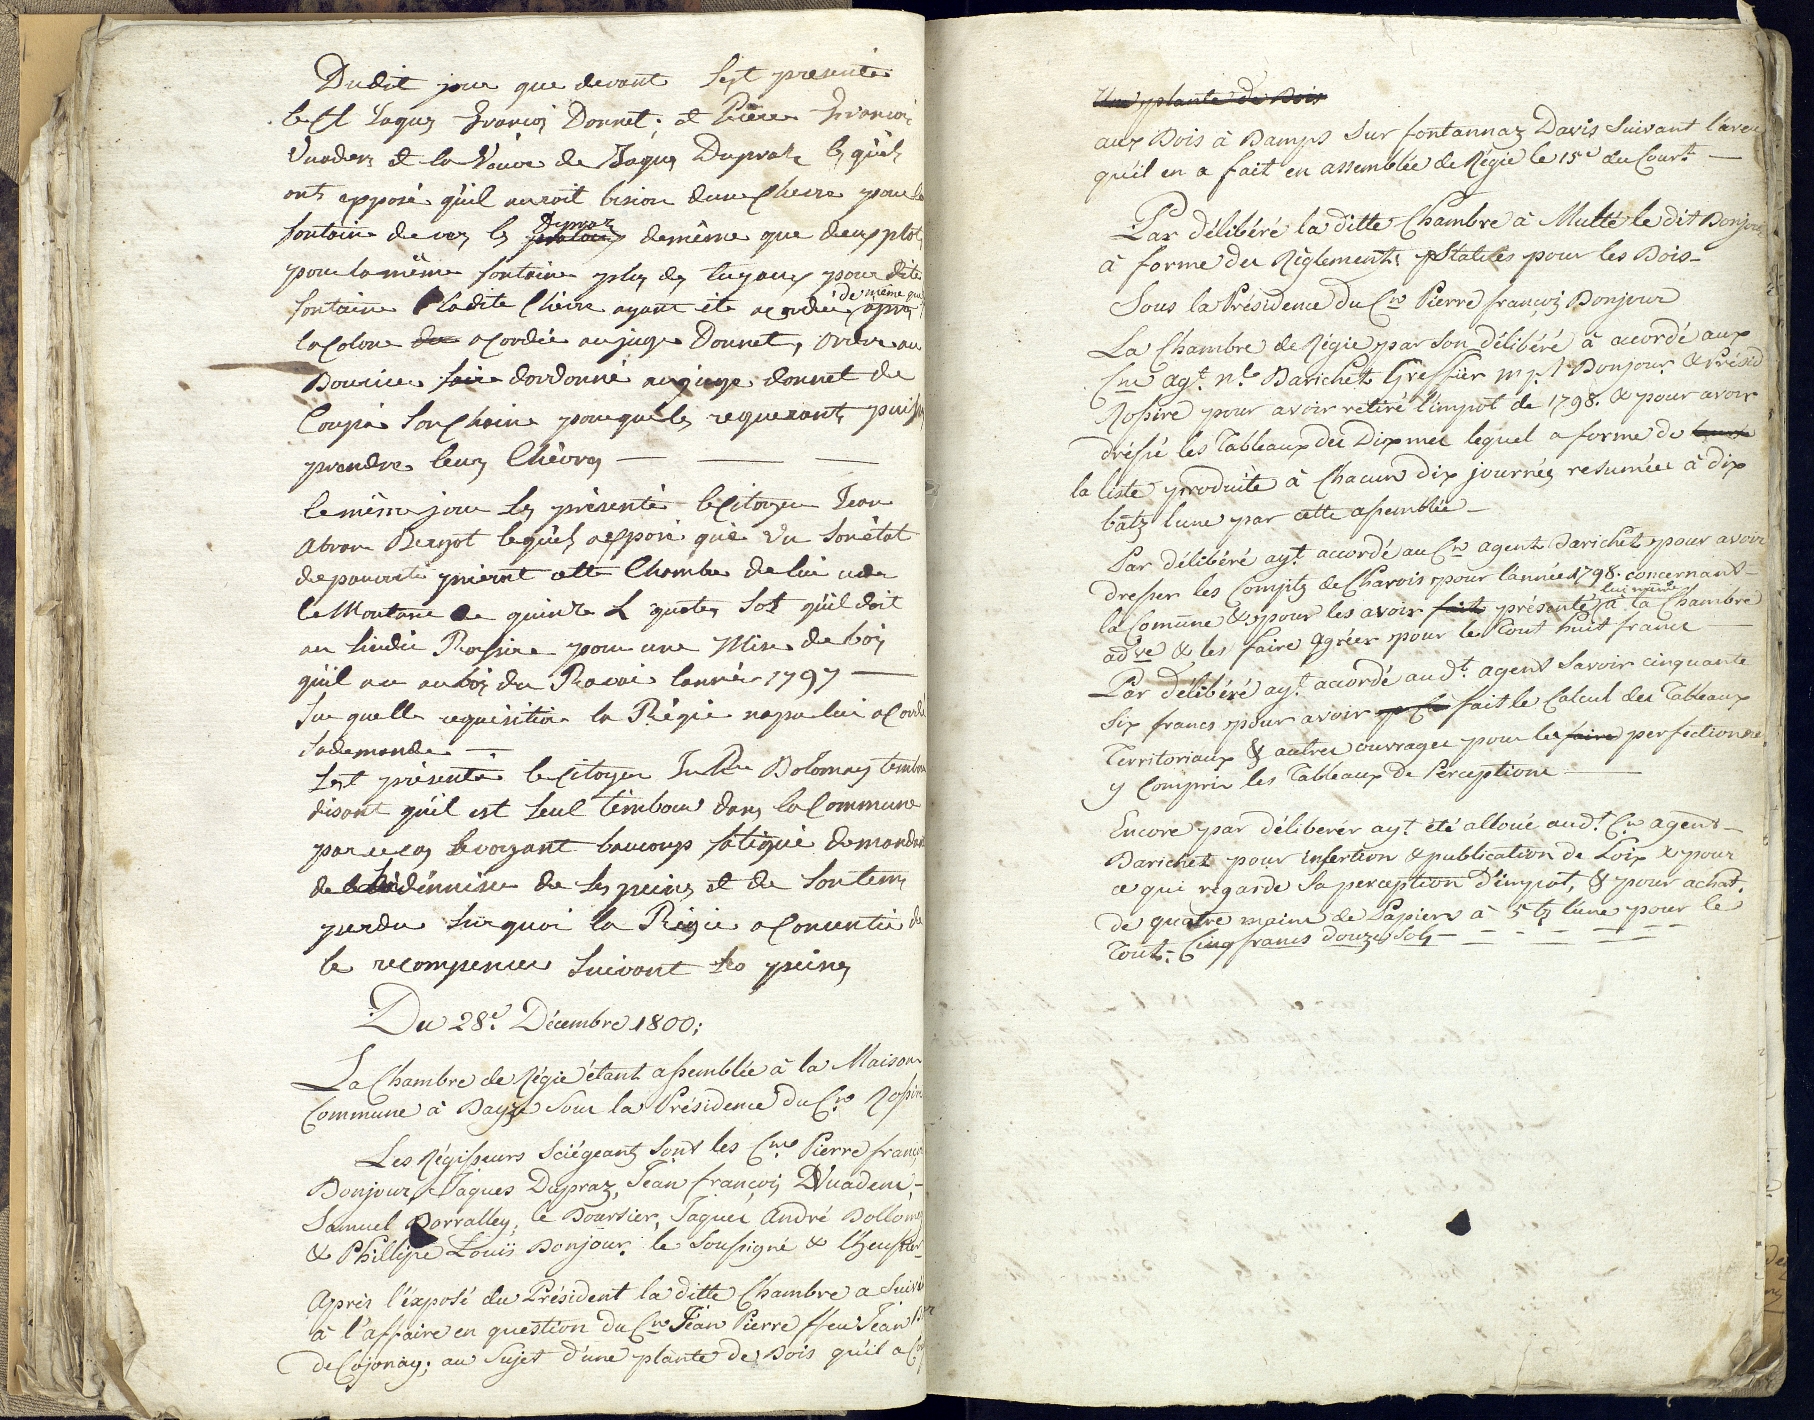 Dudit jour que devant Sest presenté
le Ct Jaques François Donnet; et Pierre François
Vuadens et la Veuve de Jaques Dupraz lesquels
ont exposé quil auroit bision dune Cheire pour la
fontaine de vers les Dupraz demême que deux plot
pour la même fontaine plus des tuyaux pour dite
fontaine ladite Chèvre ayant été acordée de même que
la Colone acordée au juge Donnet, ordre au
Boursier dordonné au juge donnet de
Coupé Son Choin pour que les requerants puisse
prendre leurs Chèvres — — —
le même jour Ses présenté le Citoyen Jean
Abram Bergot lequel a exposé que Vu Son état
de pauverté prieront cette Chambre de lui
le Montant de quinze L quatre Sols quil doit
au Sindic Rossire pour une Mise de bois
quil au bois du Ravoi lannée 1797 —
Sur quelle requisition la Régie napa lui acordé
Sa demande —
Sest présenté le Citoyen Dolomay tembour
disant quil est Seul témbour dans la Commune
par ce cas Se voyant baucoup fatigué demandant
de Lidénnisé de Ses peines et de Son tems
perdu Sur quoi la Régie a Consentie de
le recompenser Suivant Ses peines
Du 28e. Décembre 1800;
La Chambre de Régie étant assemblée à la Maison
Commune à Sous la Présidence du Cne Rossire
Les Régisseurs Sciégeants Sont les Cns. Pierre françois
Bonjour, Jaques Dupraz, Jean françois Vuadens,—
Samuel Borralley, le Boursier, Jaques André Dollomey
& Phillipe Louïs Bonjour. le Soussigné & lheussier
Après l'éxposé du Président la ditte Chambre a Suivi
à l'affaire en question du Cne Jean Pierre ffeu Jean
de Cojonay; au Sujet d'une plante de Bois qu'il a
Une plante de Bois
aux Bois à Bamps Sur fontannaz Davis Suivant l'aveu
qu'il en a fait en assemblée de Régie le 15e du Court. —
Par délibéré la ditte Chambre à Multé le dit Bonjour
à forme des Règlements Statués pour les Bois—
Sous la Présidence du Cne Pierre françois Bonjour
La Chambre de Régie par Son délibéré à acordé aux
Cns agt. nl. Barichet Greffier Bonjour & Présid
Rossire pour avoir retiré l'impot de 1798. & pour avoir
dréssé les Tableaux des Dixmes lequel a forme de
la liste produite à Chacun dix journées resumées à dix
batz lune par cette assemblée—
Par délibéré ayt. accordé au Cne agent Barichet pour avoir
dresser les Compts de Charois pour l'année 1798. concernant
la Comune & pour les avoir fait présenté lui même à la Chambre
adve & les faire Agréer pour le tout huit francs —
Par délibéré ayt. accordé au dt. agent Savoir cinquante
Six francs pour avoir fait le Calcul des Tableaux
Territoriaux & autres ouvrages pour les faire perfectionner
y Compris les Tableaux de Perceptions —
Encore par délibérér ayt été alloué au dt. Cne agent—
Barichet pour insertion & publication de Loix & pour
ce qui regarde Sa perception D'impot, & pour achat.
de quatre mains de Papiers à 5 bz l'une pour le
Tout. Cinq francs douze Sols — — — — —